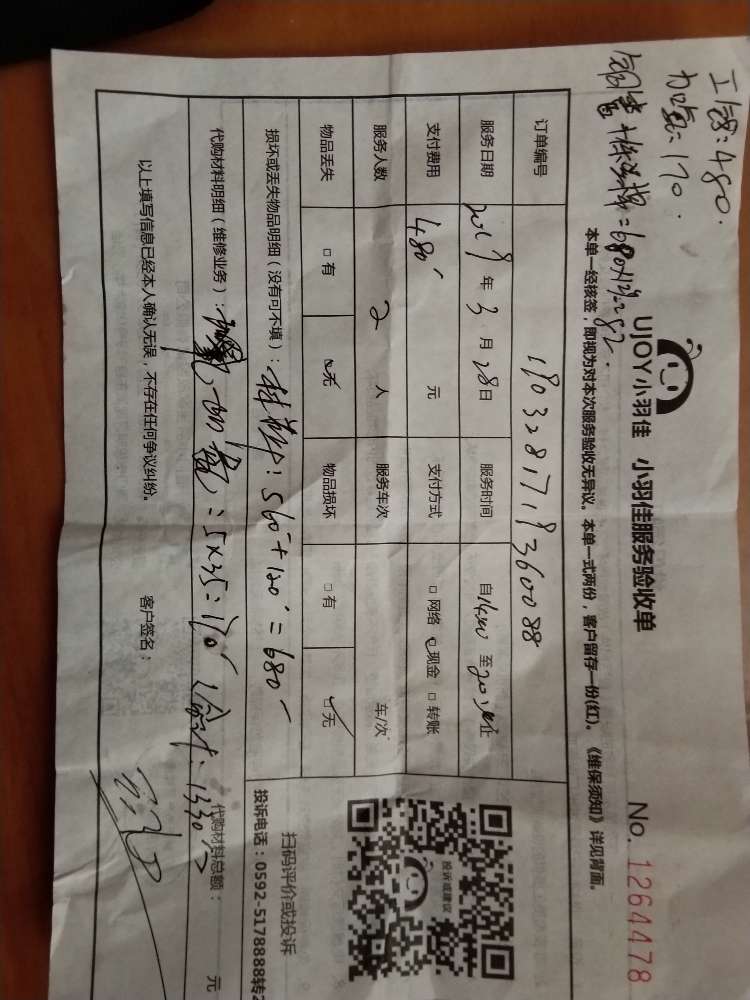 工钱:480.
加氟:170.
=680×12%=82.
UJOY小羽佳 小羽佳服务验收单
No. 1264478
本单一经核签,即视为对本次服务验收无异议。本单一式两份,客户留存一份(红)。《维保须知》详见背面。
订单编号 1903281719360088
服务日期 2019年3月28日 服务时间 自14:00至20:30止
支付费用 480 元 支付方式 □网络 □现金 □转账
服务人数 2 人 服务车次 车/次
物品丢失 □有 □无 物品损坏 □有 □无
损坏或丢失物品明细(没有可不填): 材料: 560+120=680
代购材料明细(维修业务): 加氟:5×35=170 合计:1330
代购材料总额: 元
以上填写信息已经本人确认无误,不存在任何争议纠纷。 客户签名:
投诉或建议
扫码评价或投诉
投诉电话:0592-5178888转2